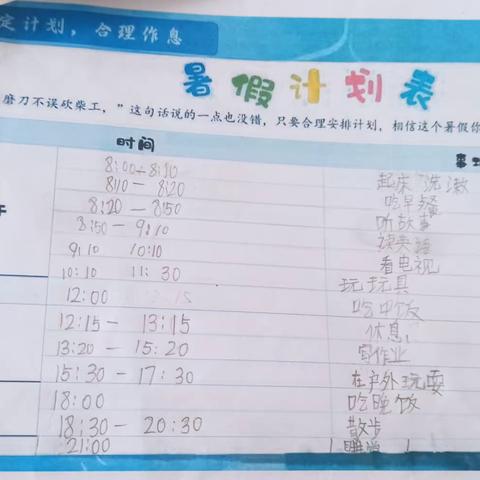 定计划，合理作息
暑假计划表
磨刀不误砍柴工，”这句话说的一点也没错，只要合理安排计划，相信这个暑假你
时间
8:00-8:10 起床 洗漱
8:10-8:20 吃早餐
8:20-8:50 听故事
8:50-9:10 读英语
9:10 10:10 看电视
10:10 11:30 玩玩具
12:00 吃中饭
12:15-13:15 休息
13:20-15:20 写作业
15:30-17:30 在户外玩耍
18:00 吃晚饭
18:30-20:30 散步
21:00